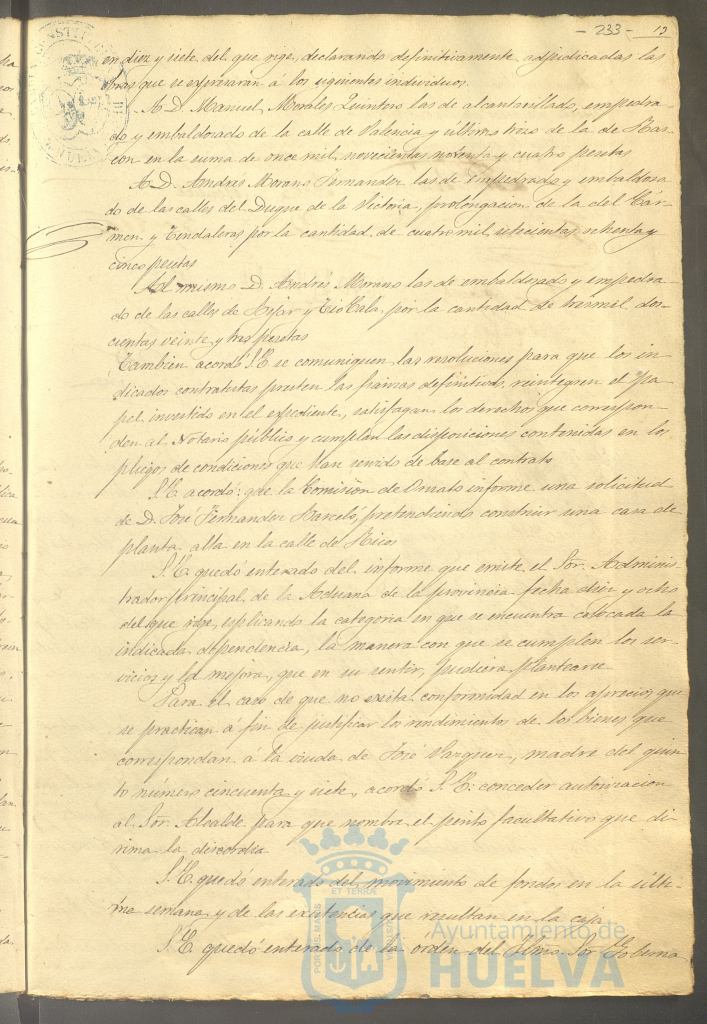 - 233 -
en diez y siete del que rige, declarando definitivamente adjudicadas las
obras que se expresaran á los siguientes individuos.
A D. Manuel Morales Quintero las de alcantarillado, empedra-
do y embaldosado de la calle de Valencia y último trozo de la de Ras-
con en la suma de once mil, novecientas noventa y cuatro pesetas
A D. Andres Morano Fernandez las de empedrado y embaldosa
do de las calles del Duque de la Victoria, prolongacion de la del Cár-
men y Tendaleras por la cantidad de cuatro mil setecientas ochenta y
cinco pesetas
Al mismo D. Andrés Morano las de embaldosado y empedra-
do de las calles de y Tio Cala, por la cantidad de tres mil dos-
cientas veinte y tres pesetas
Tambien acordó S. E. se comuniquen las resoluciones para que los in
dicados contratistas presten las fianzas definitivas, reintegren el pa
pel invertido en el expediente, satisfagan los derechos que correspon-
den al Notario público y cumplan las disposiciones contenidas en los
pliegos de condiciones que han servido de base al contrato
S. E. acordó: que la Comision de Ornato informe una solicitud
de D. José Fernandez Barceló, pretendiendo construir una casa de
planta alta en la calle de Ricos
S. E. quedó enterado del informe que emite el Sor. Adminis-
trador principal de la Aduana de la provincia fecha diez y ocho
del que rige, esplicando la categoria en que se encuentra colocada la
indicada dependencia, la manera con que se cumplen los ser-
vicios y la mejora, que en su sentir, pudiera plantearse
Para el caso de que no exista conformidad en los aprecios que
se practican á fin de justificar los rendimientos de los bienes que
correspondan á la viuda de José Vazquez, madre del quin
to número cincuenta y siete, acordó S. E. conceder autorizacion
al Sor. Alcalde para que nombre el perito facultativo que di
rima la discordia
S. E. quedó enterado del movimiento de fondos en la últi-
ma semana y de las existencias que resultan en la caja
S. E. quedó enterado de la orden del Iltmo. Sor. Goberna
PORTUS MARIS ET TERRAE CUSTODIA
Ayuntamiento de
HUELVA